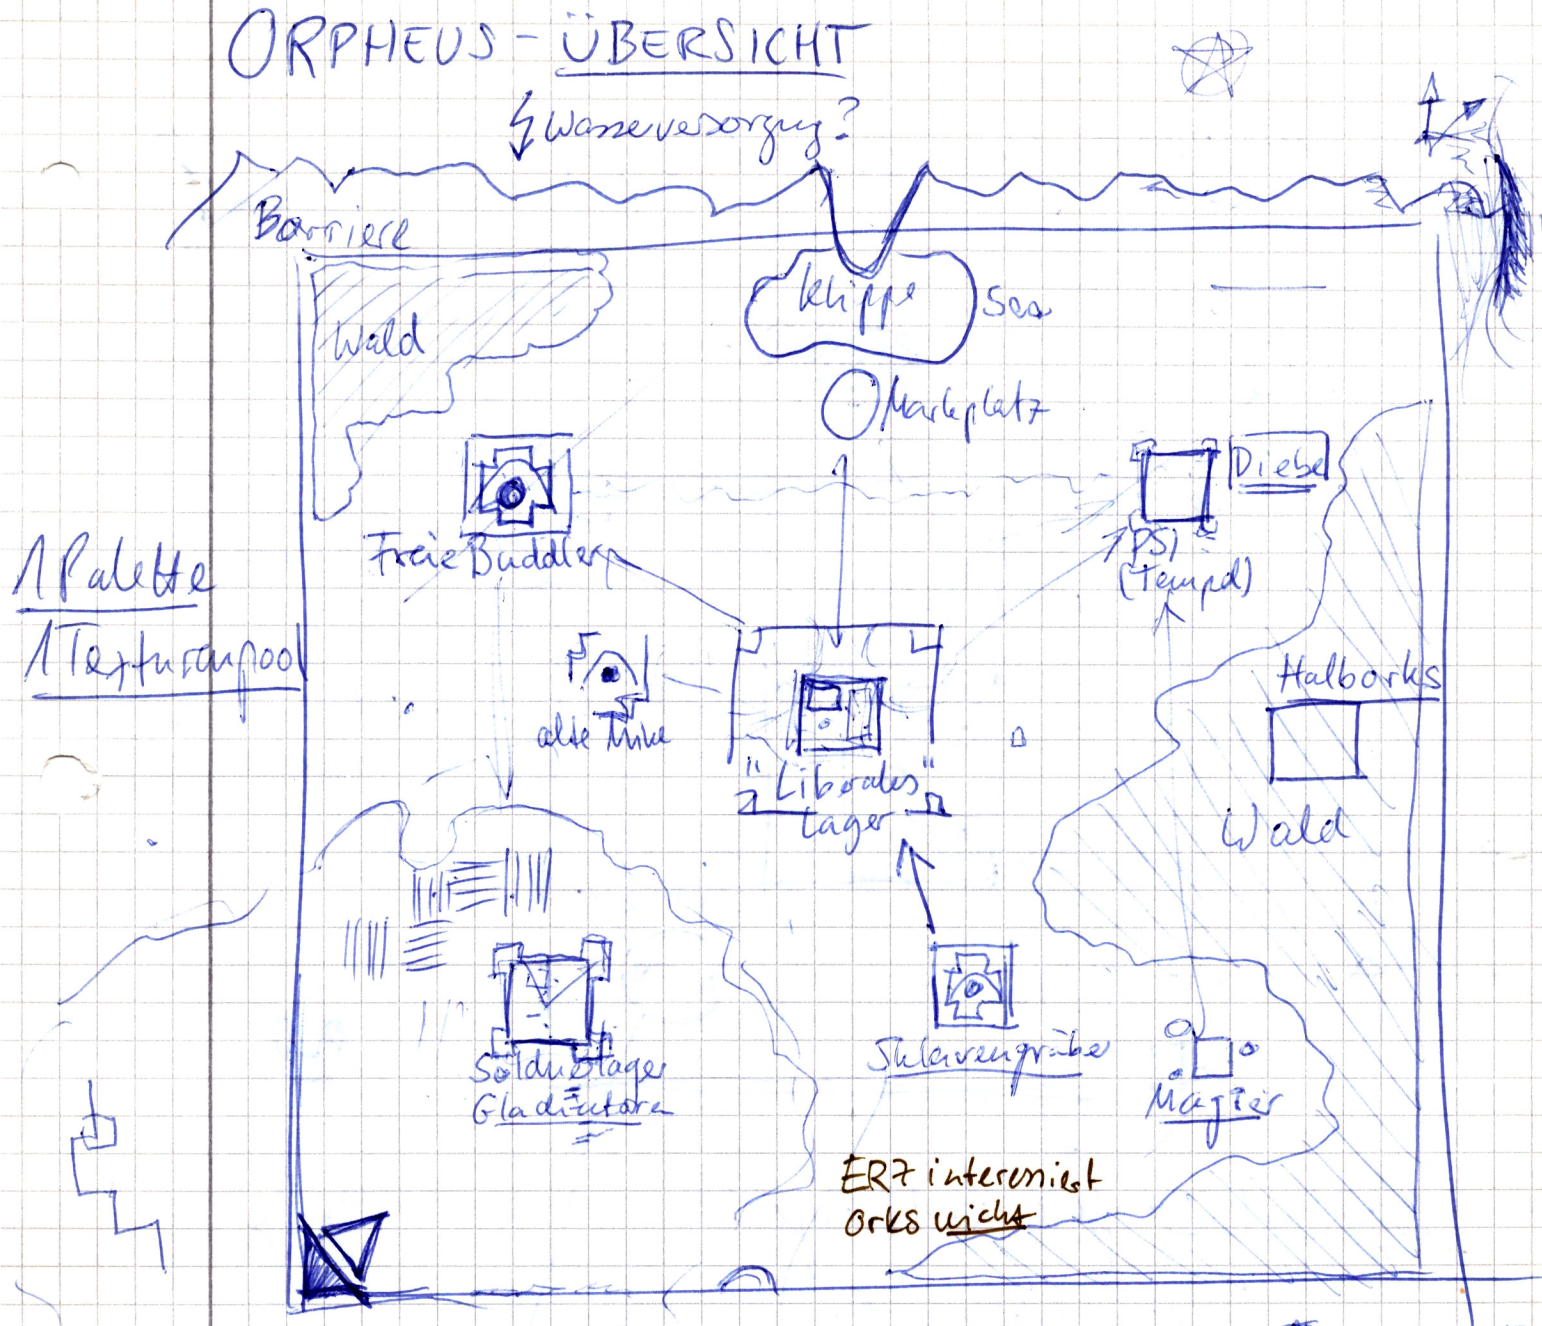 ORPHEUS - ÜBERSICHT
Wasserversorgung?
Barriere
Wald
Klippe
See
Markplatz
Diebe
PSI
(Tempel)
Freie Buddler
1 Palette
1 Texturenpool
alte Mine
Halborks
"Liberales"
Lager
Wald
Söldnerlager
Gladiatoren
Sklavengräber
Magier
ERZ interessiert
Orks nicht